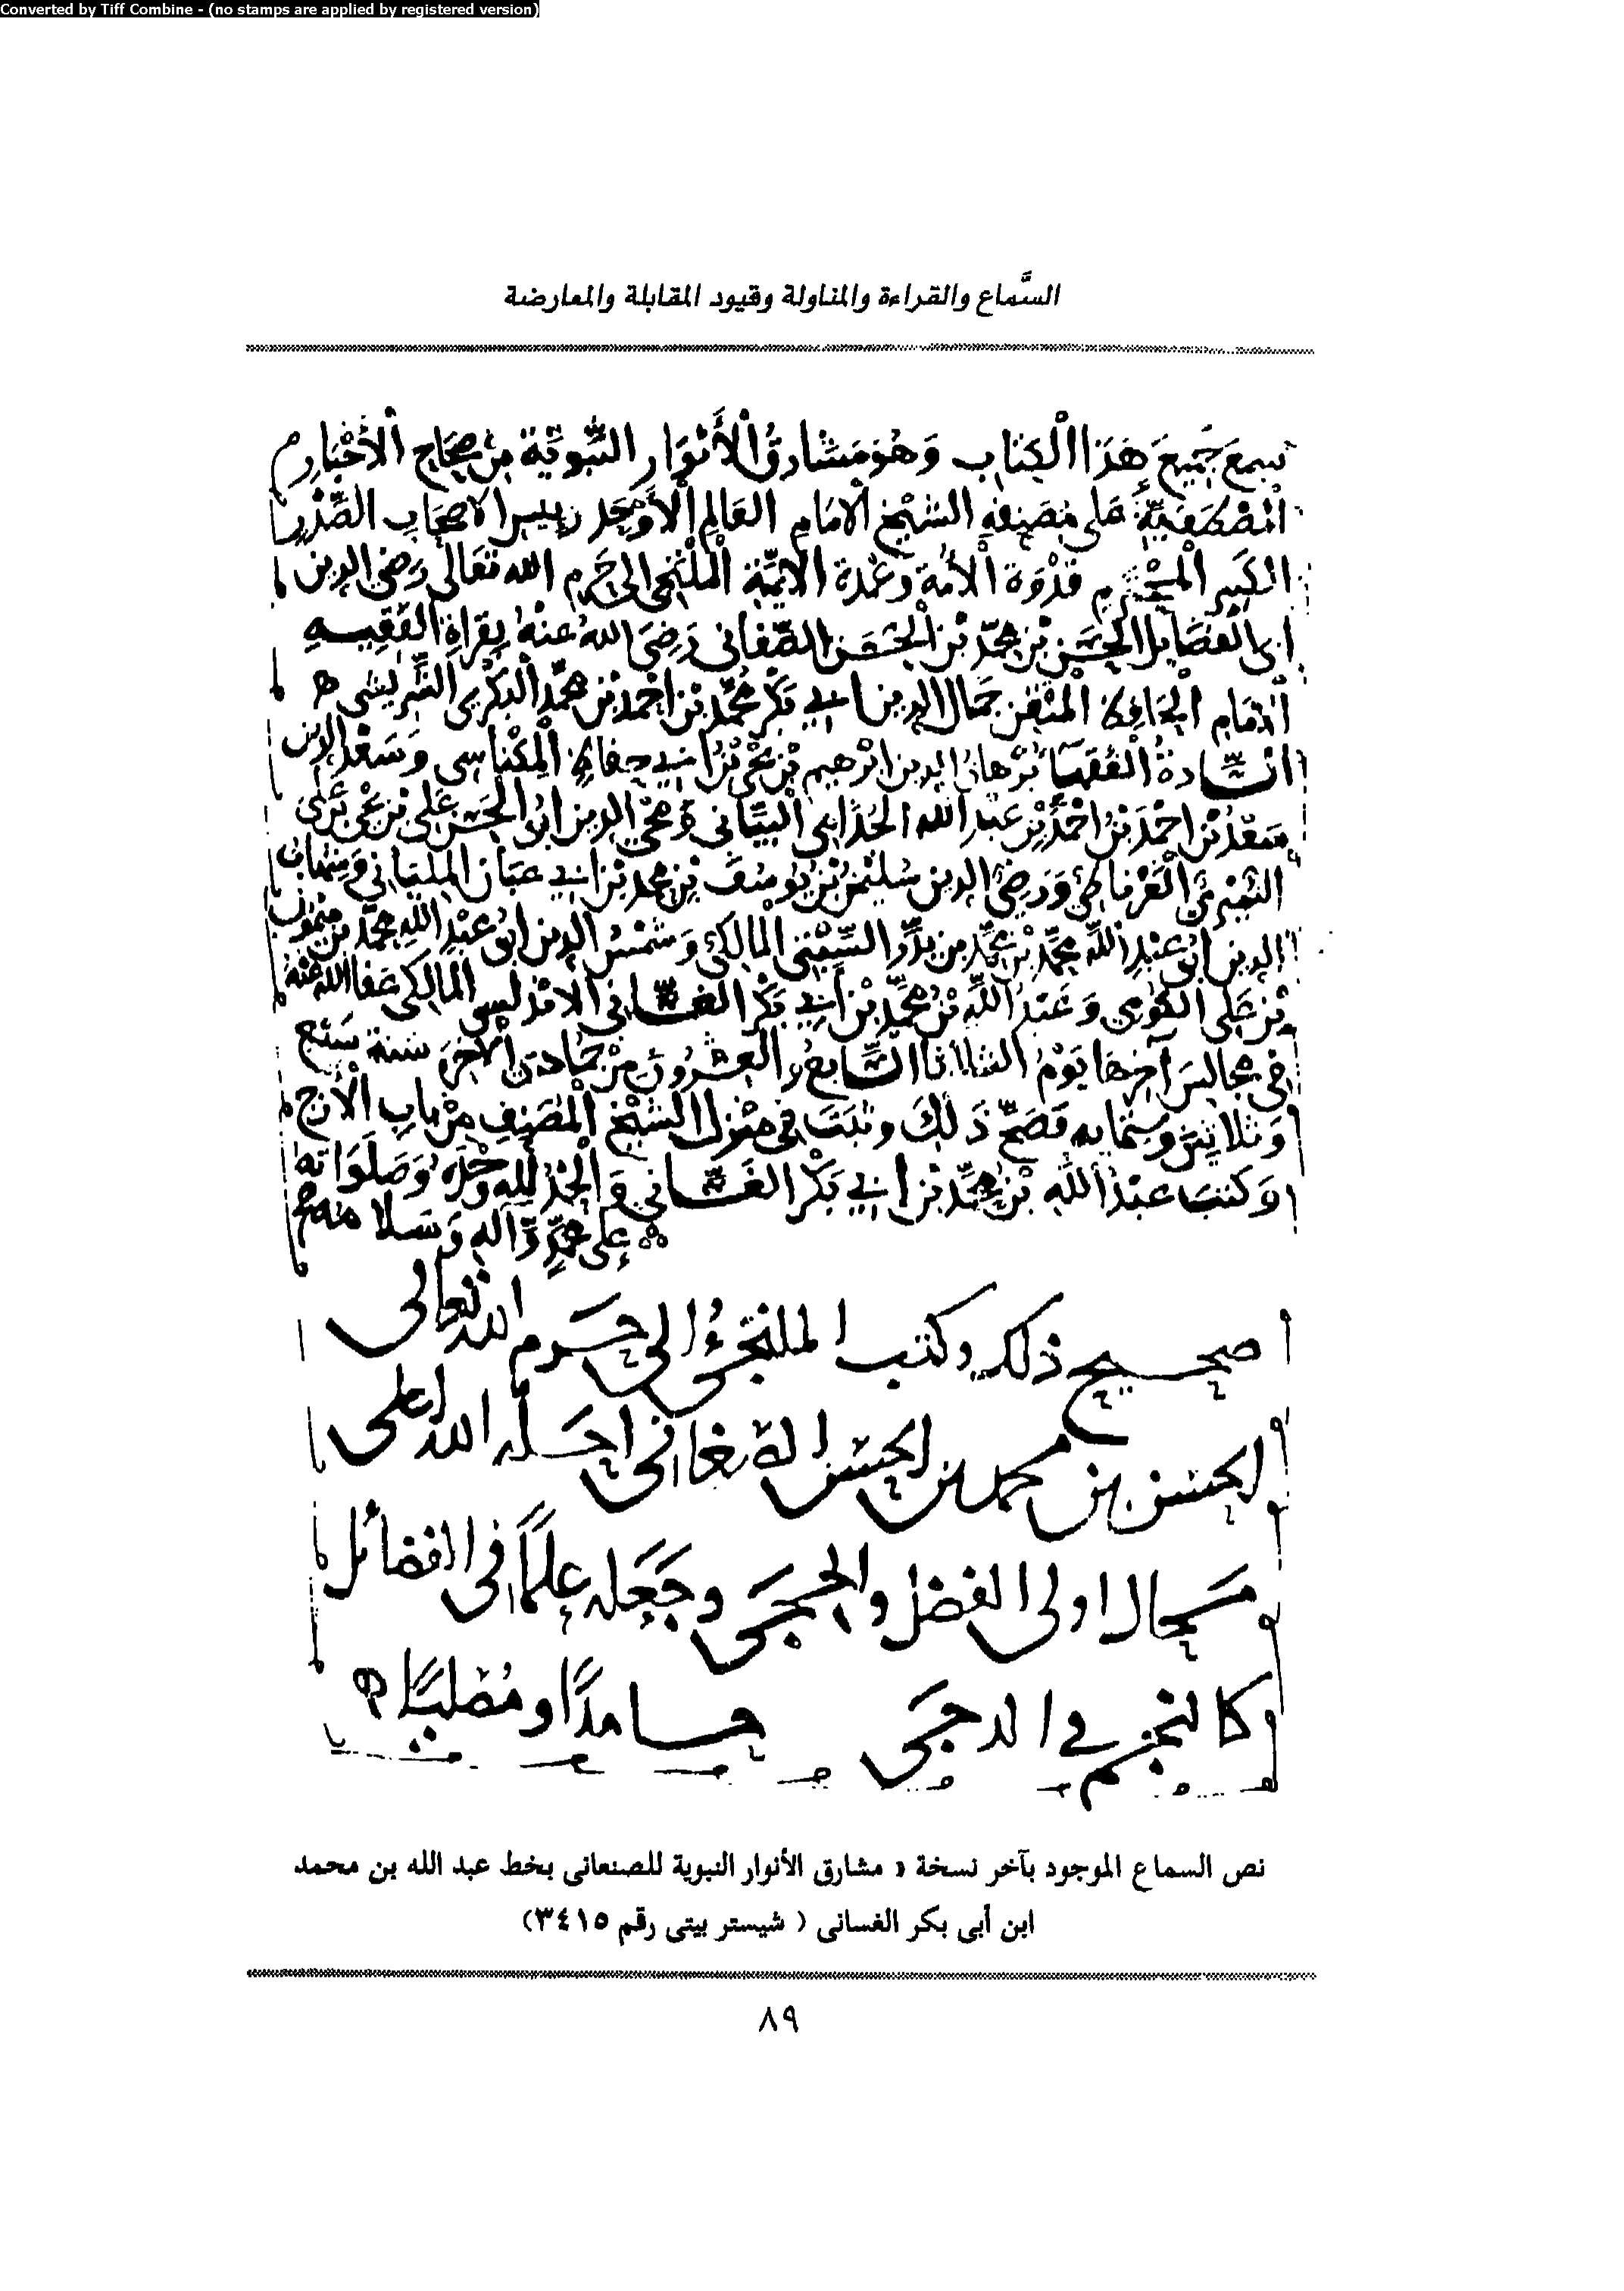 Converted by Tiff Combine - (no stamps are applied by registered version)
السَّماع والقراءة والمناولة وقيود المقابلة والمعارضة
سمع جَميعَ هَذَا الْكِتاب وَهُوَ مَشَارِقُ الْأَنْوَارِ النَّبَوِيَّة مِنْ صِحَاحِ الْأَخْبَارِ
المُصْطَفَوِيَّة عَلى مُصَنِفِهِ الشَّيْخ الامَام العَالِم الْأَوْحَد رييس الاصحَاب الصَّدْر
الكَبير الْمحْتَرم قُدْوَة الْأُمَّة وَعُمْدَة الايمَّة الْمُلْتَجِي الى حَرَم الله تعَالى رَضِيِّ الدين
ابى الفَضَايل الحَسَن بْن محمَّد بْن الحَسَن الصَّغاني رَضِيَ اللهُ عَنْهُ بِقِرَاةِ الفَقِيه
الامَام الْحَافِظ الْمُتْقِن جَمَال الدين ابي بَكْر مُحَمَّد بْن احْمَد بْن محمَّد الْبَكْرِي الشَّرِيشى
السَّادةُ الْفُقَهَا بُرْهَانُ الدين ابْرٰهيم بْن يحْيى بْن ابي حِفاظ الْمِكْنَاسِي وَسَعْد الدين
سَعْدُ بْن احْمَد بْن احْمَد بْن عَبْد الله الجُذَامِي الْبَيَّاني وَمحْيي الدين ابُو الحَسَن عَلي بْن يحْيى بْن عَلي
النُّمَيْرِيُّ الْغَرْنَاطِيُّ وَرَضِيُّ الدين سُلَيْمٰن بْن يُوسُف بْن محمد بْن ابي الملياني وَشهَاب
الدين ابُو عَبْدِ اللهِ محمَّد بْن محَمَّد بن المَالِكي وَشَمْسُ الدين ابُو عَبْدِ اللهِ محمَّد بْن مَيْمُون
بْن عَلي وَعَبْدُ اللهِ بْن مُحَمَّد بْن أَبِي بَكْر الغَسَّاني الانْدَلُسِي المالِكي عَفَا اللهُ عَنْهُ
فِي مجَالِسَ آخِرُهَا يَوْمُ الثلاثا السَّابعُ وَالعِشْرُون مِنْ جُمَادَى الْآخِرَة سَنَة سَبْع
وَثلاثينَ وستمايه فَصَحَّ ذَلِكَ وثَبَتَ فِي مَنْزِل الشَّيْخ المُصَنِف مِنْ بَابِ الْأزج
وَكَتبَ عَبْدُ اللهِ بْن محمَّد بْن ابي بَكْر الغَسَّاني وَالْحَمْدُ لله وَحْدَهُ وَصَلَوَاته
عَلى محمَّدٍ وَآلِهِ وَسَلامُه
صحيح ذلك وكتب الملتجئ إلى حرم الله تعالى
الحسن بن محمد بن الحسن الصغانى احله الله اعلى
محال اولى الفضل والحجى وجعله علمًا فى الفضائل
كالنجم في الدجى حامدًا ومصليًا
نص السماع الموجود بآخر نسخة « مشارق الأنوار النبوية للصنعانى بخط عبد الله بن محمد
ابن أبى بكر الغسانى ( شيستر بيتى رقم ٣٤١٥)
٨٩